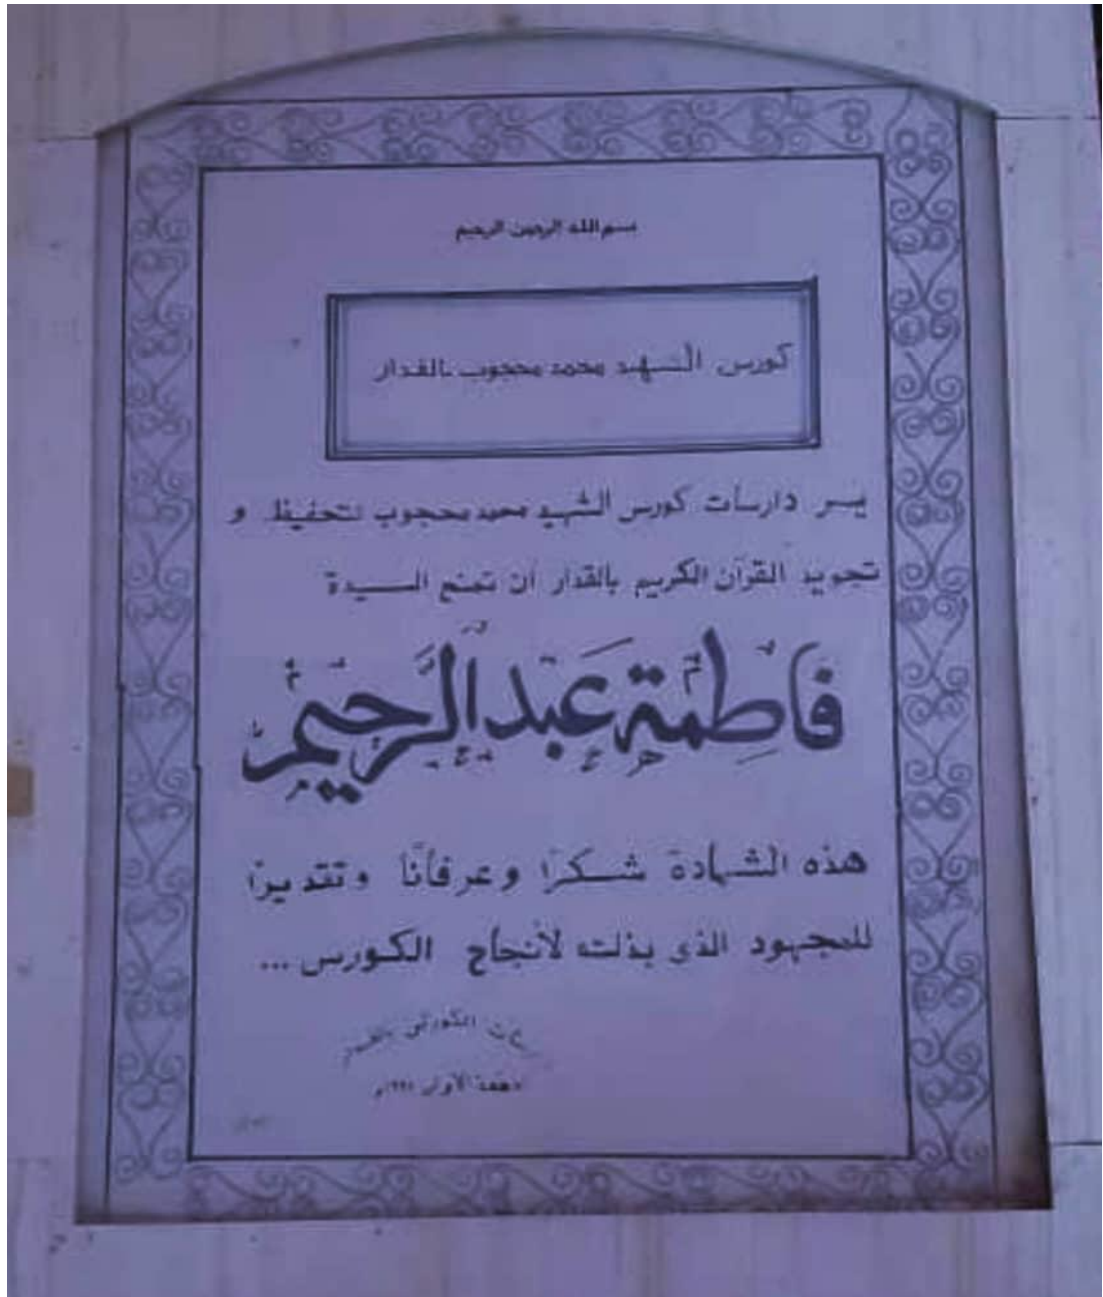 بسم الله الرحمن الرحيم
كورس الشهيد محمد محجوب بالقدار
يسر دارسات كورس الشهيد محمد محجوب لتحفيظ و
تجويد القرآن الكريم بالقدار ان تمنح السيدة
فاطمة عبد الرحيم
هذه الشهادة شكرًا وعرفانًا وتقديرًا
للمجهود الذى بذلته لأنجاح الكورس ...
الكورس
الدفعة الأولى